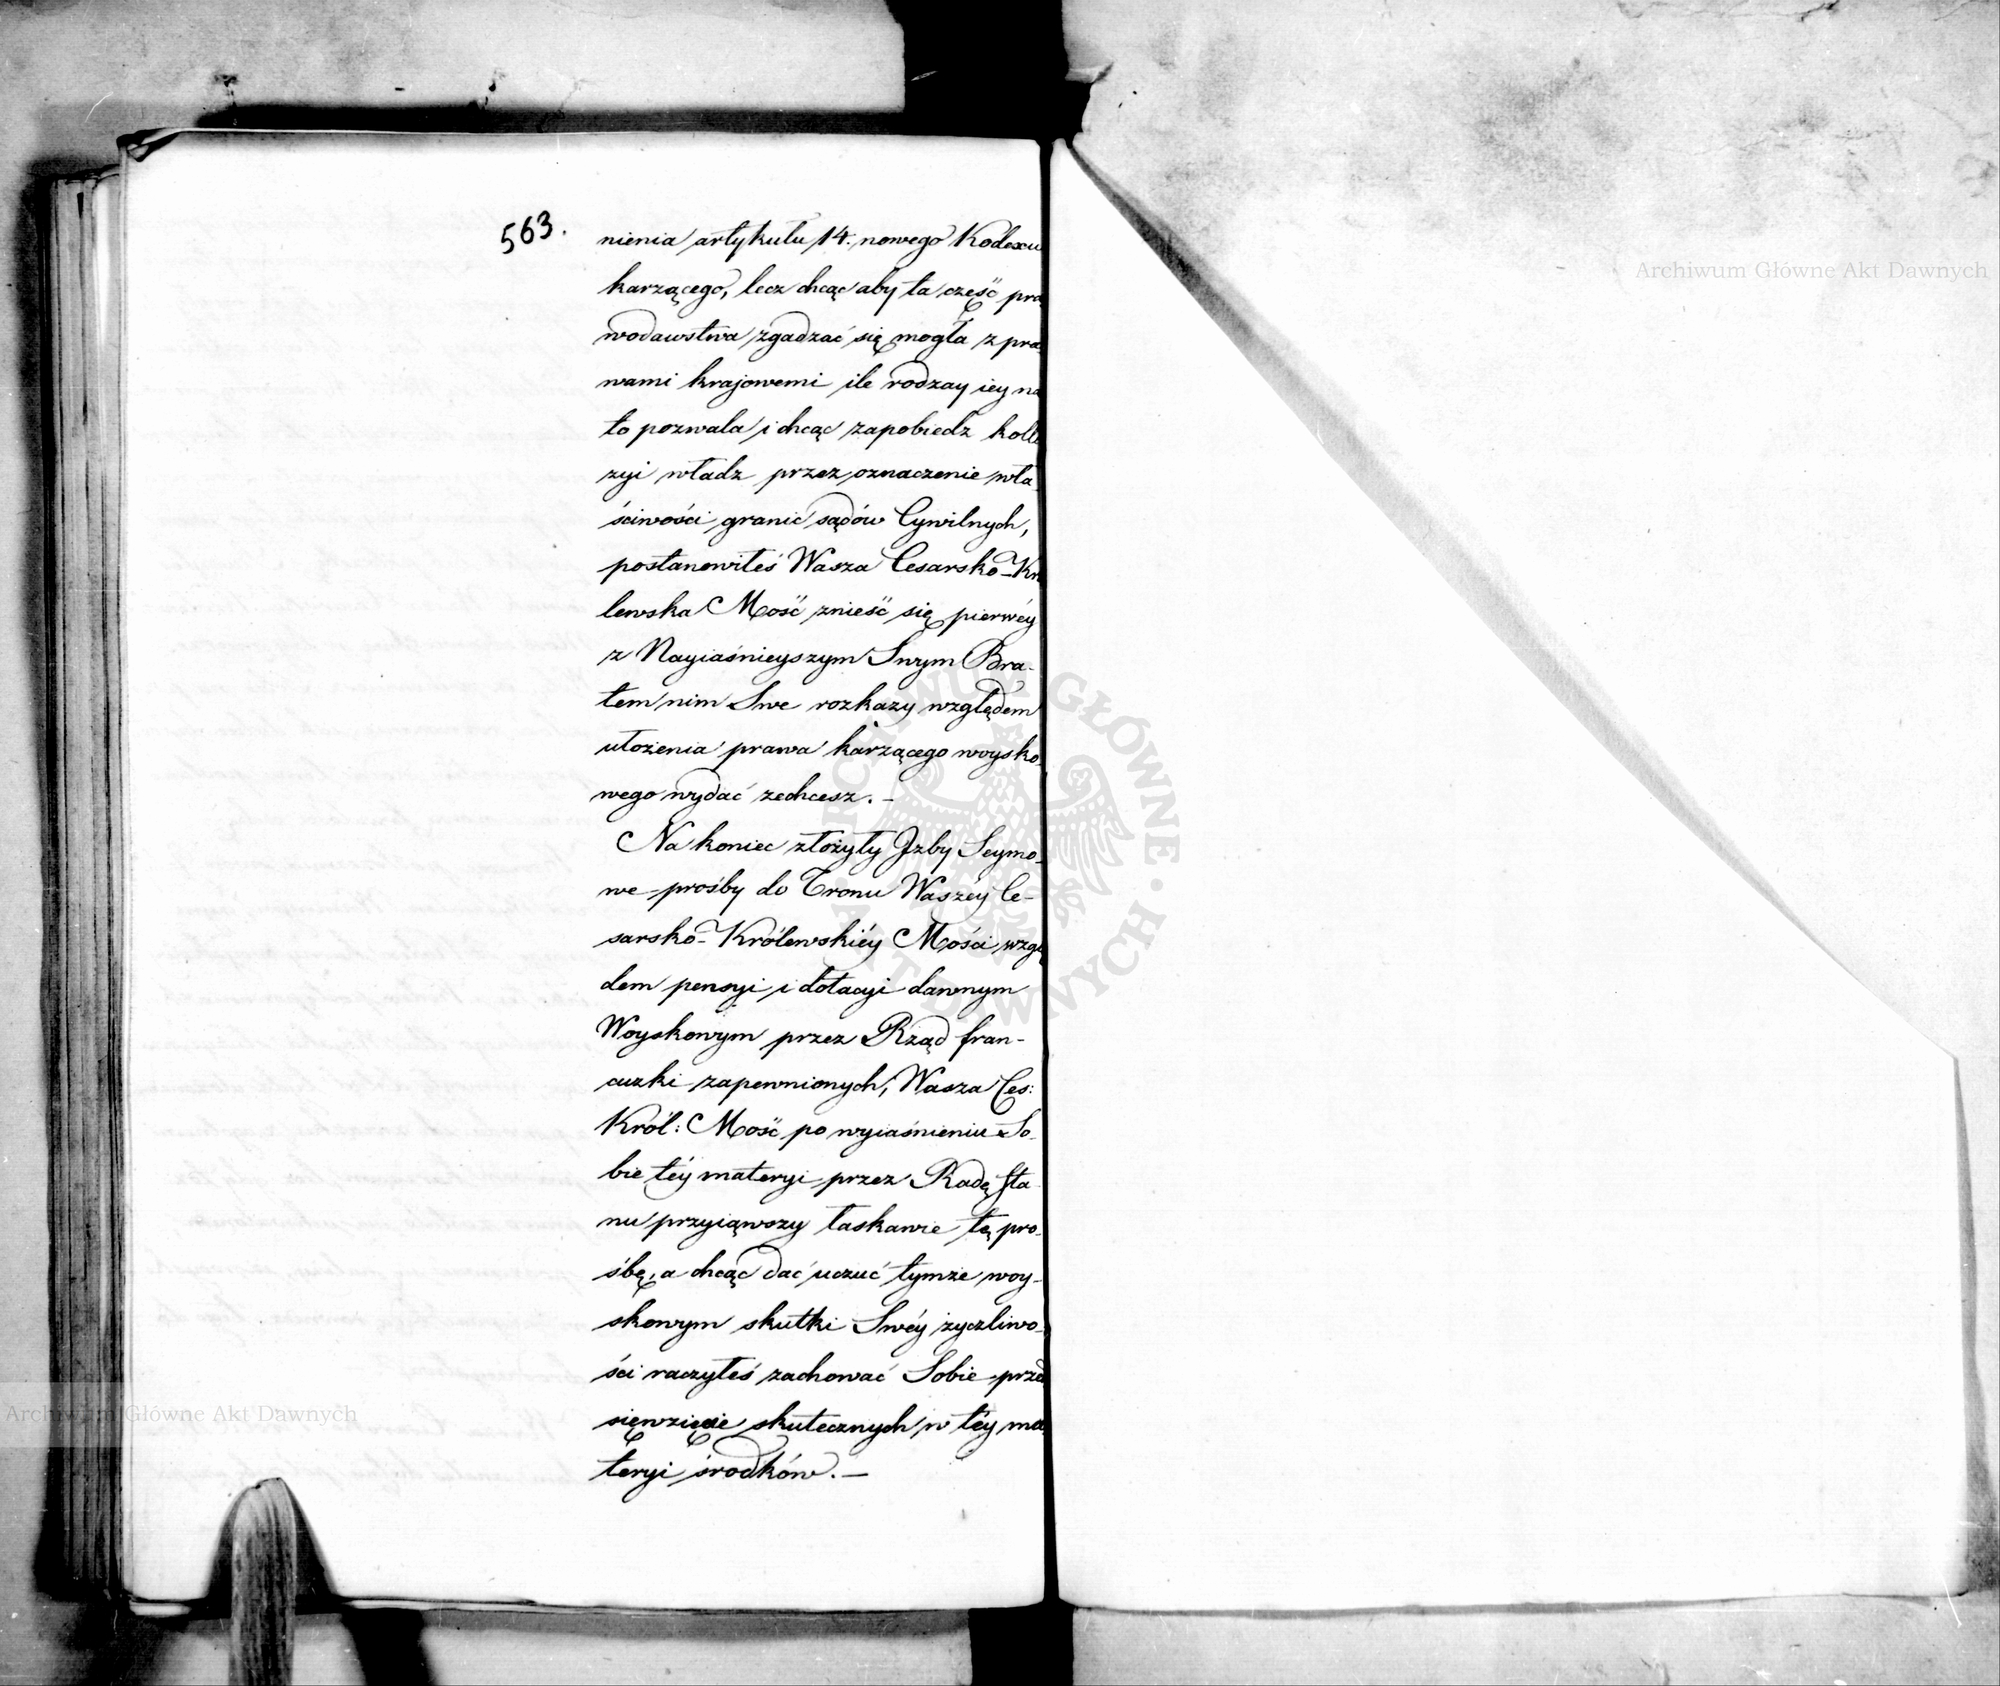 563.
nienia artykułu 14. nowego Kodexu
karzącego, lecz chcąc aby ta część pra
wodawstwa zgadzać się mogła z pra
wami krajowemi ile rodzay iey na
to pozwala i chcąc zapobiedz kolli
zyi władz przez oznaczenie wła
ściwości granic sądów Cywilnych,
postanowiłeś Wasza Cesarsko-Kró
lewska Mość znieść się pierwéy
z Nayiaśnieyszym Swym Bra-
tem nim Swe rozkazy względem
ułożenia prawa karzącego woysko
wego wydać zechcesz. -
Na koniec złożyły Izby Seymo-
we prośby do Tronu Waszéy Ce-
sarsko-Królewskiéy Mości wzglę
dem pensyi i dotacyi dawnym
Woyskowym przez Rząd fran-
cuzki zapewnionych; Wasza Ces:
Król: Mość po wyiaśnieniu So-
bie téy materyi przez Radę Sta
nu przyiąwszy łaskawie tę pro-
śbę, a chcąc dać uczuć tymże woy-
skowym skutki Swéy życzliwo-
ści raczyłeś zachować Sobie przed
sięwzięcie skutecznych w téy ma
teryi środków. -
Archiwum Główne Akt Dawnych
Archiwum Główne Akt Dawnych
ARCHIWUM GŁÓWNE · AKT DAWNYCH ·